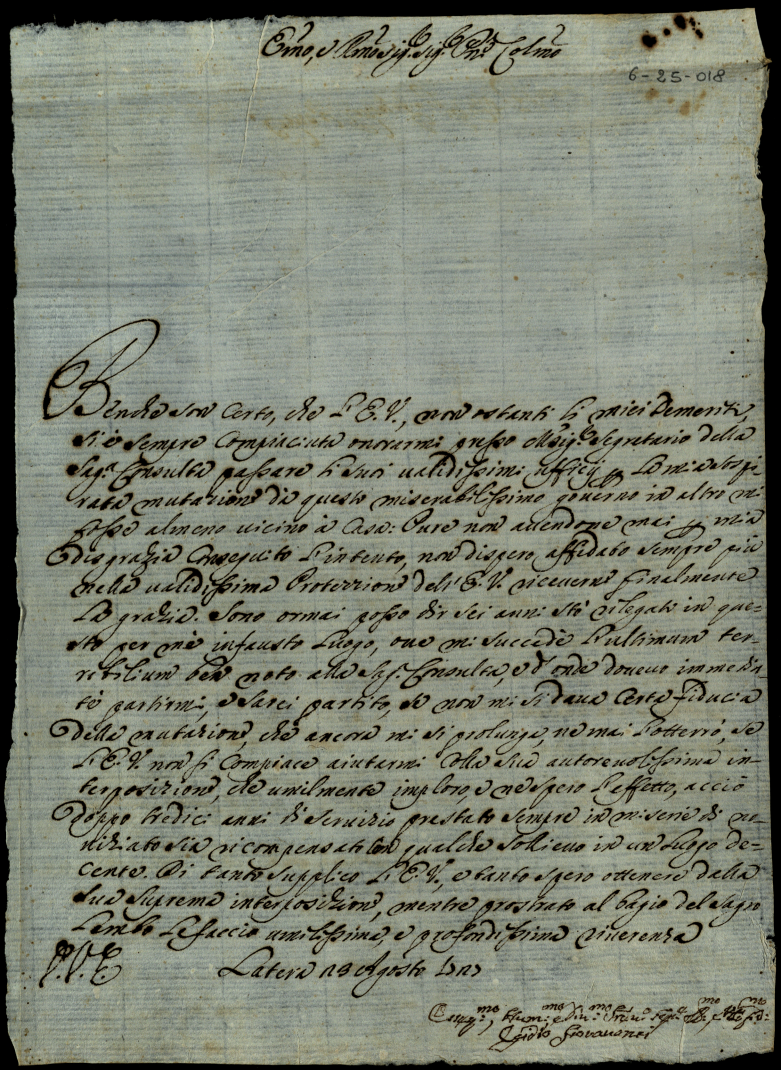 Emo, e Rmo Sig. Sig. Pne Colmo
6-25-018
Benche son Certo, che L'E.V., non ostanti li miei Demeriti,
si è sempre Compiaciuta onorarmi presso Msig.e Segretario della
Sag.a Consulta passare li suoi validissimi ufficij p. la mia sospi
rata mutazione da questo miserabilissimo governo in altro mi
fosse almeno vicino à Casa: Pure non avendone mai p. mia
Disgrazia Conseguito L'intento, non dispero, affidato sempre più
nella validissima Protezzione dell'E.V. riceverne finalmente
La grazia. Sono ormai posso dir sei anni stò rilegato in que=
sto per mè infausto Luogo, ove mi succedè L'ultimum ter=
ribilium ben noto alla Sag. Consulta, e d'onde dovevo immedia=
te partirmi, e sarei partito, se non mi si dava Certa fiducia
della mutazione, che ancora mi si prolunga, ne mai L'otterrò, se
L'E.V. non si Compiace aiutarmi Colla sua autorevolissima in=
terposizione, che umilmente imploro, e ne spero L'effetto, acciò
doppo tredici anni di servizio prestato sempre in miserie di no=
viziato sia ricompensato con qualche sollievo in un Luogo de=
cente. Di tanto supplico L'E.V., e tanto spero ottenere dalla
sua suprema interposizione, mentre prostrato al bagio del Sagro
Lembo Le faccio umilissima, e profondissima riverenza
D.V.E. Latera 18 Agosto 1717
Egidio Giovannni